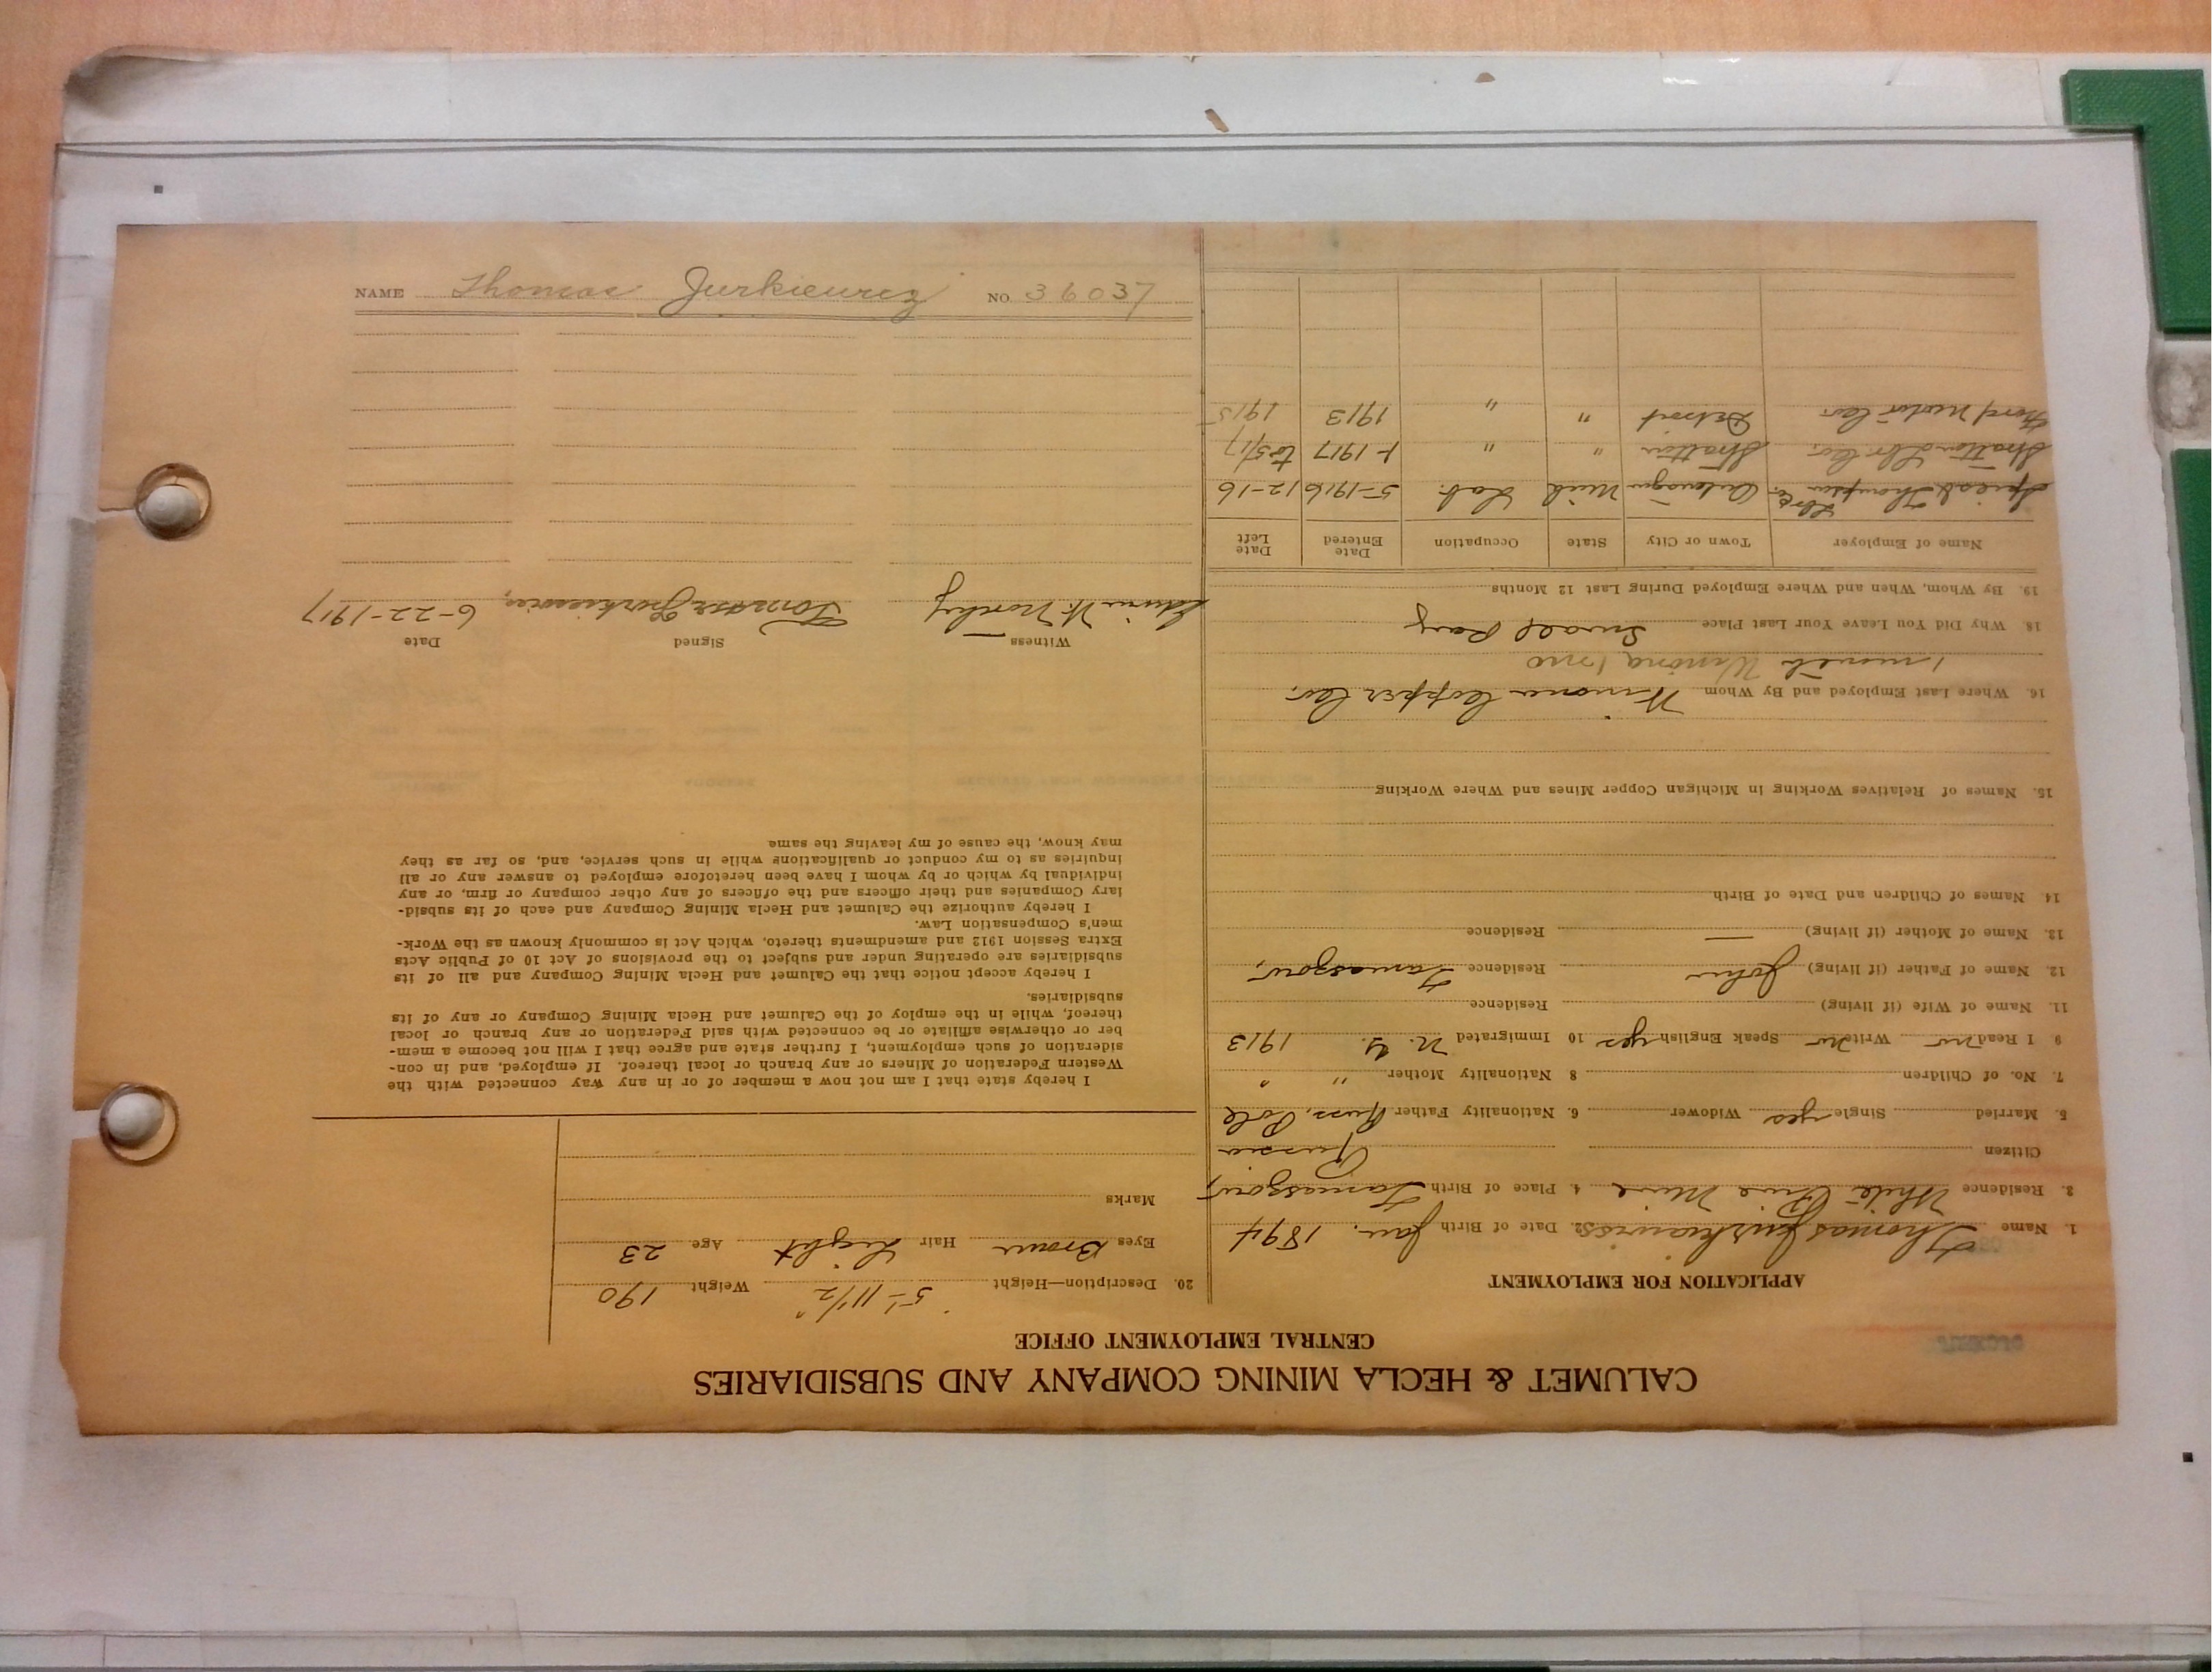 CALUMET & HECLA MINING COMPANY AND SUBSIDIARIES
CENTRAL EMPLOYMENT OFFICE
APPLICATION FOR EMPLOYMENT
1. Name Thomas 2. Date of Birth Jan. 1894
3. Residence White Pine Mine 4. Place of Birth
Citizen Russia
5. Married Single yes Widower 6. Nationality Father Russ. Pole
7. No. of Children 8 Nationality Mother " "
9 I Read No Write No Speak English yes 10 Immigrated N. Y. 1913
11. Name of Wife (if living) Residence
12. Name of Father (if living) John Residence
13. Name of Mother (if living) — Residence
14. Names of Children and Date of Birth
15. Names of Relatives Working in Michigan Copper Mines and Where Working
16. Where Last Employed and By Whom Winona Copper Co.
1 month Winona 1 mo
18. Why Did You Leave Your Last Place Small Pay
19. By Whom, When and Where Employed During Last 12 Months
Name of Employer Town or City State Occupation Date Entered Date Left
Thompson Lbr Co. Mich Lab. 5-1916 12-16
Stratton Lbr Co. Stratton " " 1-1917 to 5/17
Ford Motor Co. Detroit " " 1913 1915
20. Description—Height 5'-11 1/2" Weight 190
Eyes Brown Hair Light Age 23
Marks
I hereby state that I am not now a member of or in any way connected with the
Western Federation of Miners or any branch or local thereof. If employed, and in con-
sideration of such employment, I further state and agree that I will not become a mem-
ber or otherwise affiliate or be connected with said Federation or any branch or local
thereof, while in the employ of the Calumet and Hecla Mining Company or any of its
subsidiaries.
I hereby accept notice that the Calumet and Hecla Mining Company and all of its
subsidiaries are operating under and subject to the provisions of Act 10 of Public Acts
Extra Session 1912 and amendments thereto, which Act is commonly known as the Work-
men's Compensation Law.
I hereby authorize the Calumet and Hecla Mining Company and each of its subsid-
iary Companies and their officers and the officers of any other company or firm, or any
individual by which or by whom I have been heretofore employed to answer any or all
inquiries as to my conduct or qualifications while in such service, and, so far as they
may know, the cause of my leaving the same
Witness Signed Date
Edwin W. 6-22-1917
NAME Thomas Jurkiewicz NO. 36037